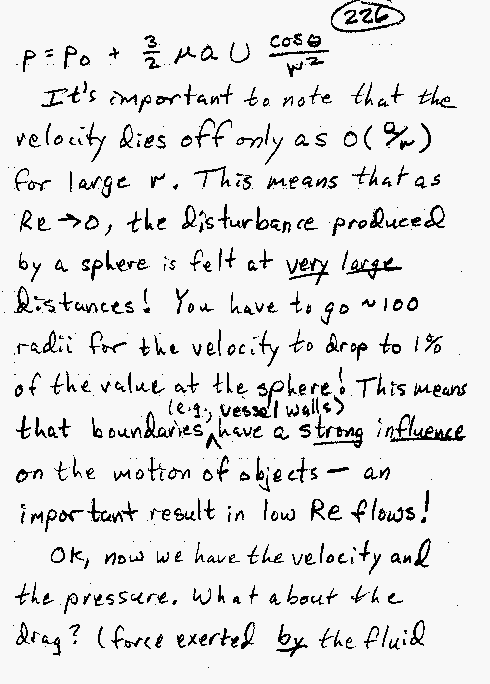 226
p = p0 + 3/2 μa U cosθ/r²
It's important to note that the
velocity dies off only as O(a/r)
for large r. This means that as
Re→0, the disturbance produced
by a sphere is felt at very large
distances! You have to go ~100
radii for the velocity to drop to 1%
of the value at the sphere! This means
(e.g., vessel walls)
that boundaries ^ have a strong influence
on the motion of objects — an
important result in low Re flows!
OK, now we have the velocity and
the pressure. What about the
drag? (force exerted by the fluid